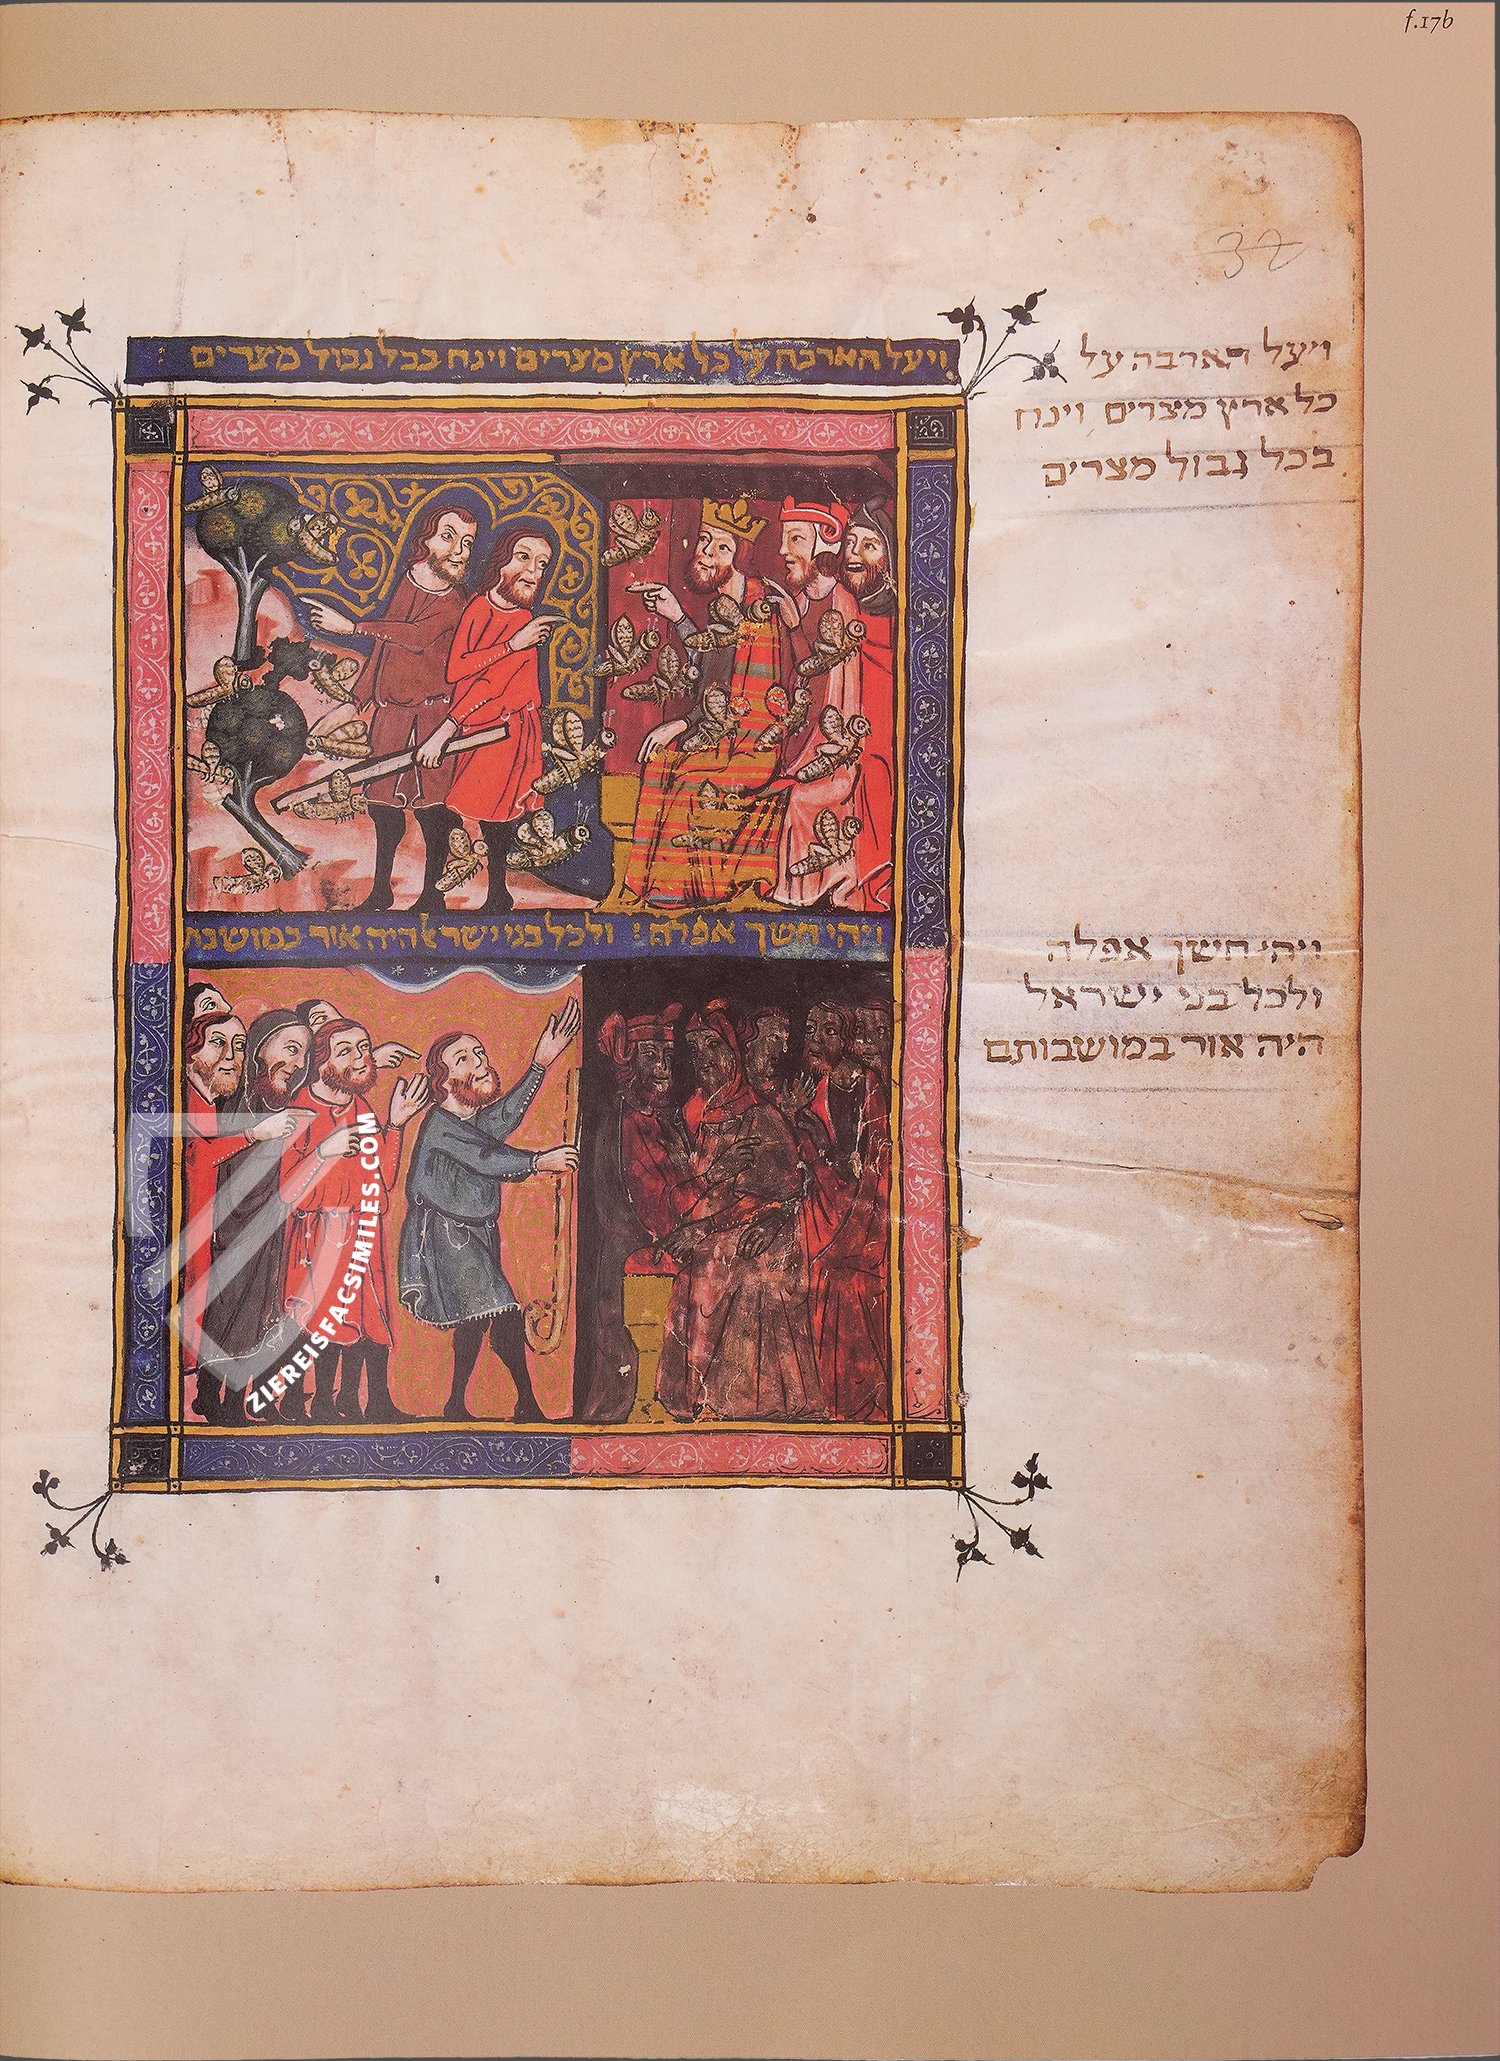 f.17b
32
ויעל הארבה על כל ארץ מצרים וינח בכל גבול מצרים :
ויעל הארבה על
כל ארץ מצרים וינח
בכל גבול מצרים
ויהי חשך אפלה : ולכל בני ישראל היה אור במושבת
ויהי חשך אפלה
ולכל בני ישראל
היה אור במושבותם
ZIEREISFACSIMILES.COM